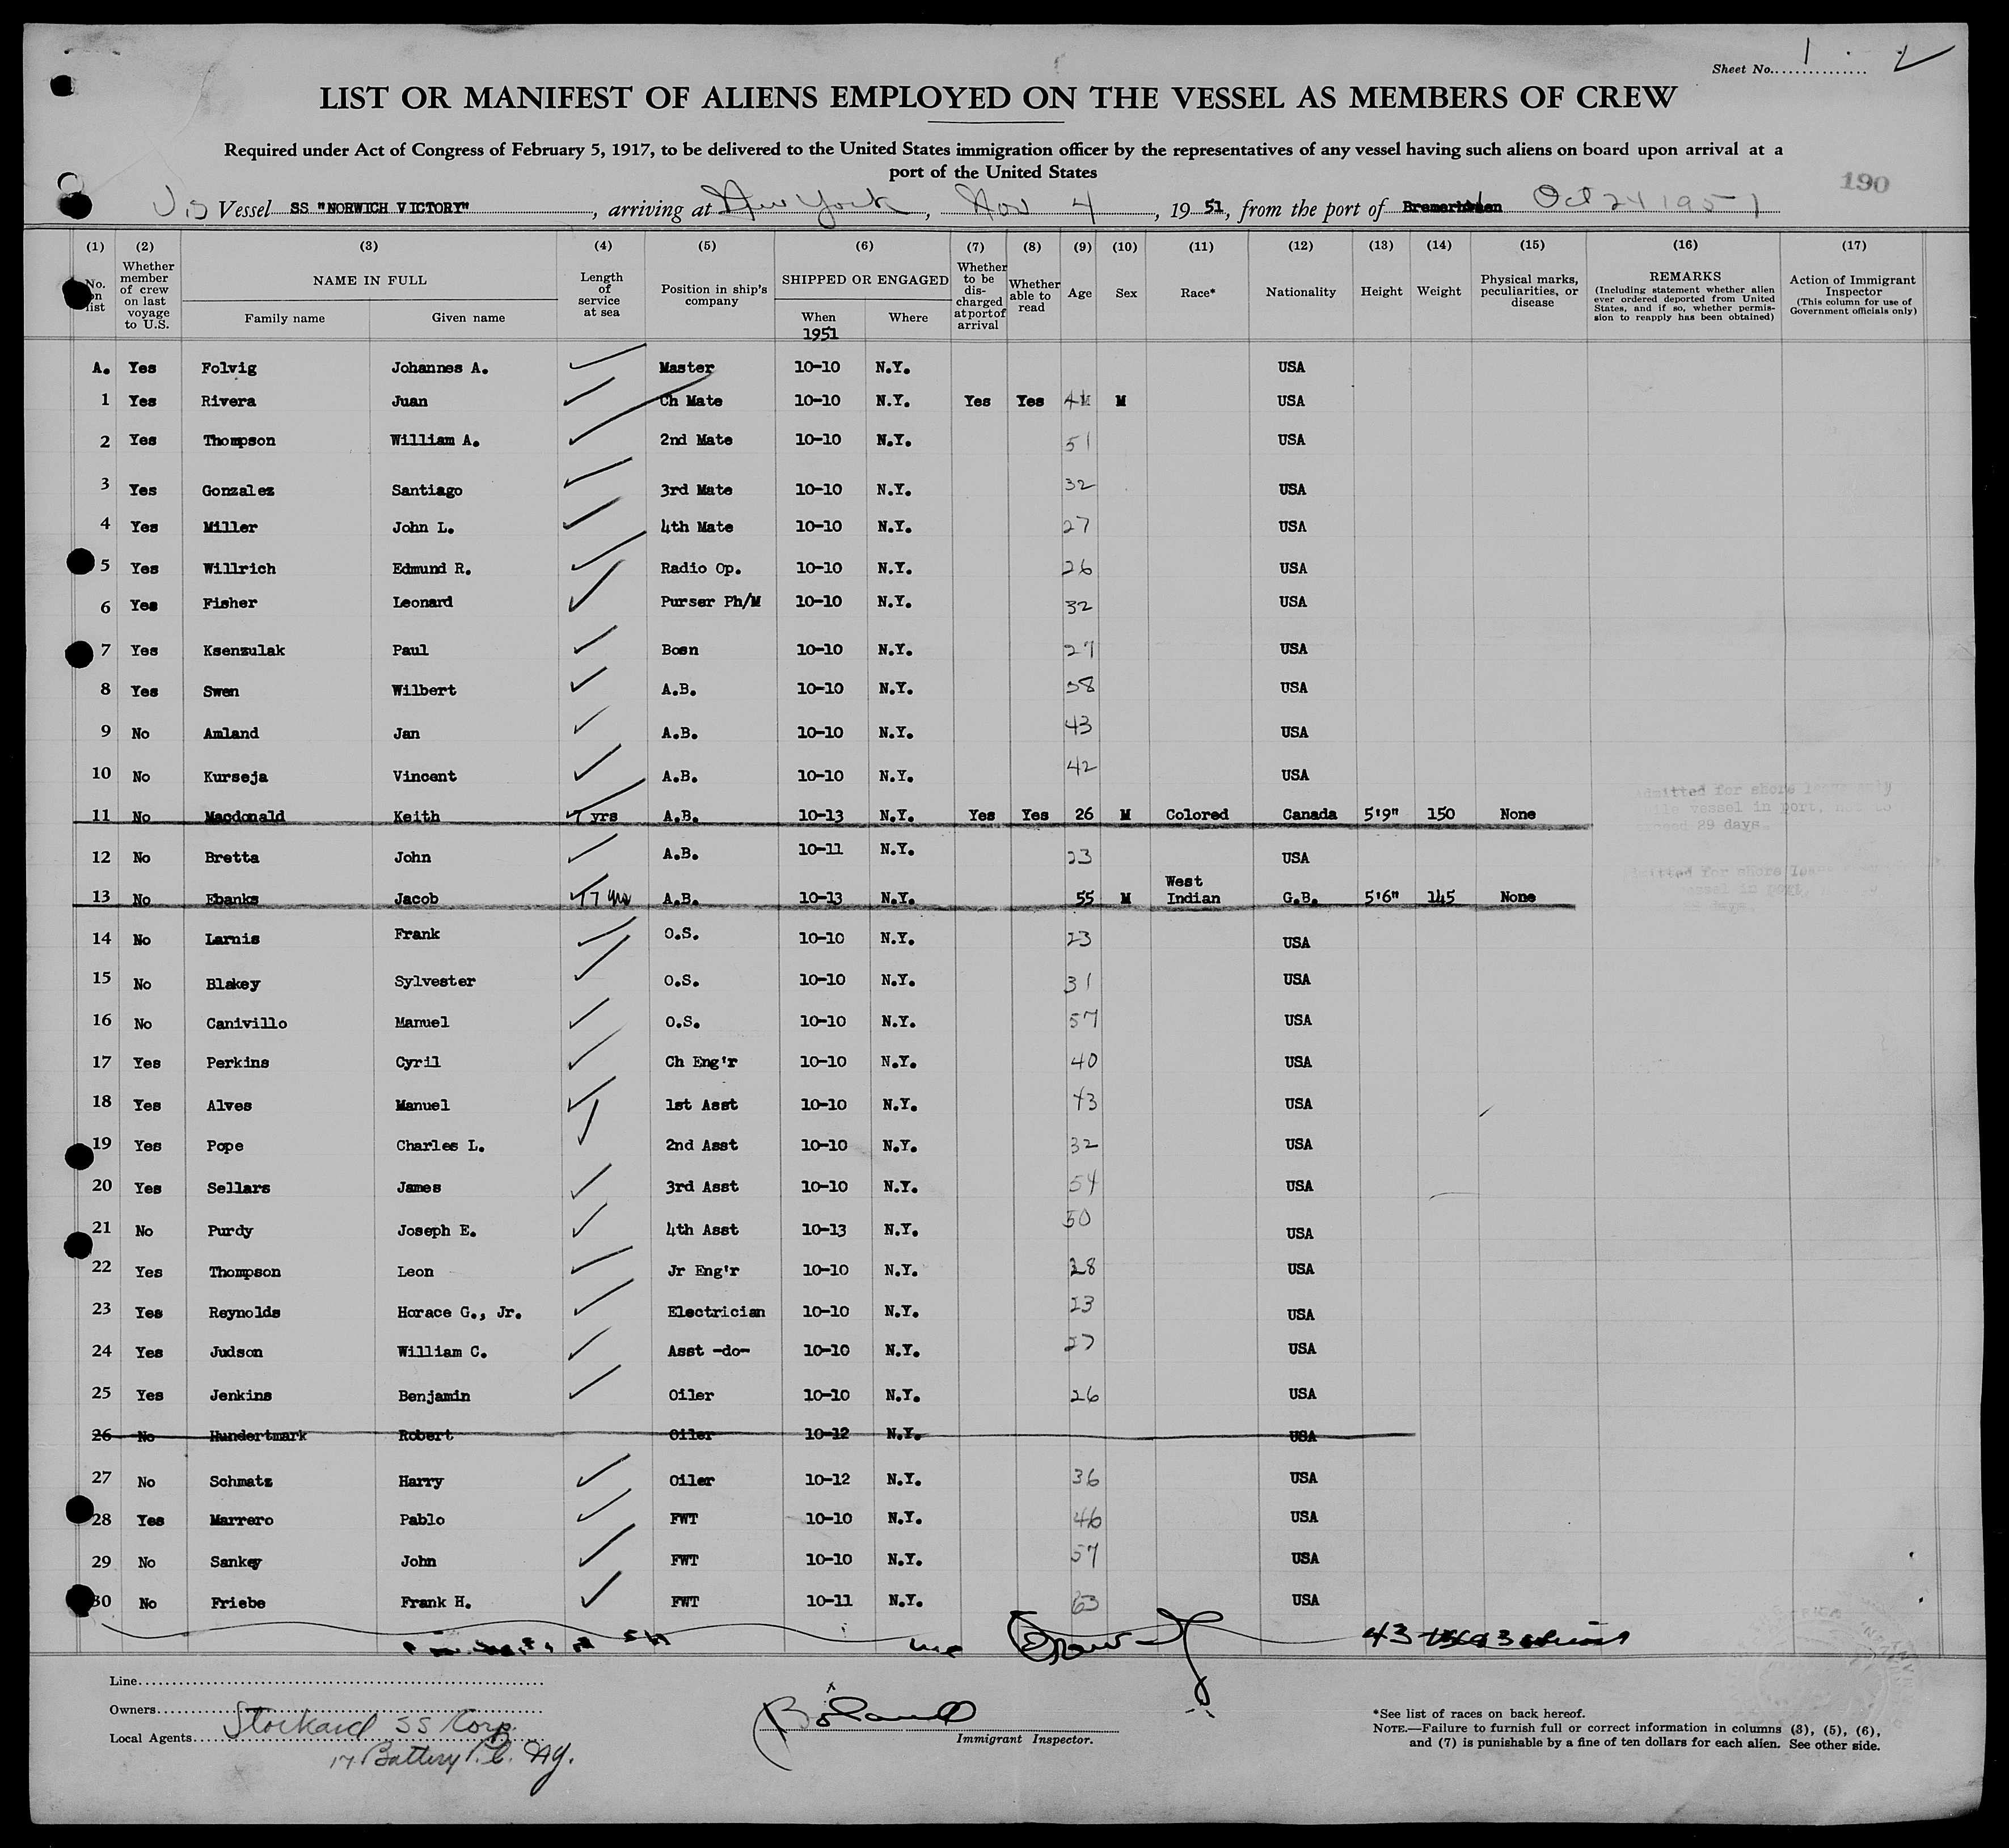 Sheet No. 1
LIST OR MANIFEST OF ALIENS EMPLOYED ON THE VESSEL AS MEMBERS OF CREW
Required under Act of Congress of February 5, 1917, to be delivered to the United States immigration officer by the representatives of any vessel having such aliens on board upon arrival at a
port of the United States
190
Vessel SS "NORWICH VICTORY", arriving at New York, Nov 4, 1951, from the port of Bremerhaven Oct 24 1951
(1) (2) (3) (4) (5) (6) (7) (8) (9) (10) (11) (12) (13) (14) (15) (16) (17)
No. on list
Whether member of crew on last voyage to U.S.
NAME IN FULL
Family name Given name
Length of service at sea
Position in ship's company
SHIPPED OR ENGAGED
When Where
1951
Whether to be discharged at port of arrival
Whether able to read
Age
Sex
Race*
Nationality
Height
Weight
Physical marks, peculiarities, or disease
REMARKS
(Including statement whether alien ever ordered deported from United States, and if so, whether permission to reapply has been obtained)
Action of Immigrant Inspector
(This column for use of Government officials only)
A. Yes Folvig Johannes A. Master 10-10 N.Y. USA
1 Yes Rivera Juan Ch Mate 10-10 N.Y. Yes Yes M USA
2 Yes Thompson William A. 2nd Mate 10-10 N.Y. 51 USA
3 Yes Gonzalez Santiago 3rd Mate 10-10 N.Y. 32 USA
4 Yes Miller John L. 4th Mate 10-10 N.Y. 27 USA
5 Yes Willrich Edmund R. Radio Op. 10-10 N.Y. 26 USA
6 Yes Fisher Leonard Purser Ph/M 10-10 N.Y. 32 USA
7 Yes Ksenzulak Paul Bosn 10-10 N.Y. 27 USA
8 Yes Swen Wilbert A.B. 10-10 N.Y. 38 USA
9 No Amland Jan A.B. 10-10 N.Y. 43 USA
10 No Kurseja Vincent A.B. 10-10 N.Y. 42 USA
11 No Macdonald Keith 7 yrs A.B. 10-13 N.Y. Yes Yes 26 M Colored Canada 5'9" 150 None
12 No Bretta John A.B. 10-11 N.Y. 23 USA
13 No Ebanks Jacob 17 yrs A.B. 10-13 N.Y. 55 M West Indian G.B. 5'6" 145 None
14 No Larnis Frank O.S. 10-10 N.Y. 23 USA
15 No Blakey Sylvester O.S. 10-10 N.Y. 31 USA
16 No Canivillo Manuel O.S. 10-10 N.Y. 57 USA
17 Yes Perkins Cyril Ch Eng'r 10-10 N.Y. 40 USA
18 Yes Alves Manuel 1st Asst 10-10 N.Y. 43 USA
19 Yes Pope Charles L. 2nd Asst 10-10 N.Y. 32 USA
20 Yes Sellars James 3rd Asst 10-10 N.Y. 54 USA
21 No Purdy Joseph E. 4th Asst 10-13 N.Y. 50 USA
22 Yes Thompson Leon Jr Eng'r 10-10 N.Y. 28 USA
23 Yes Reynolds Horace G., Jr. Electrician 10-10 N.Y. 23 USA
24 Yes Judson William C. Asst -do- 10-10 N.Y. 27 USA
25 Yes Jenkins Benjamin Oiler 10-10 N.Y. 26 USA
26 No Hundertmark Robert Oiler 10-12 N.Y. USA
27 No Schmatz Harry Oiler 10-12 N.Y. 36 USA
28 Yes Marrero Pablo FWT 10-10 N.Y. 46 USA
29 No Sankey John FWT 10-10 N.Y. 57 USA
30 No Friebe Frank H. FWT 10-11 N.Y. 63 USA
43 3
Line
Owners
Local Agents Stockard SS Corp.
17 Battery Pl. NY.
Immigrant Inspector.
*See list of races on back hereof.
NOTE.—Failure to furnish full or correct information in columns (3), (5), (6),
and (7) is punishable by a fine of ten dollars for each alien. See other side.